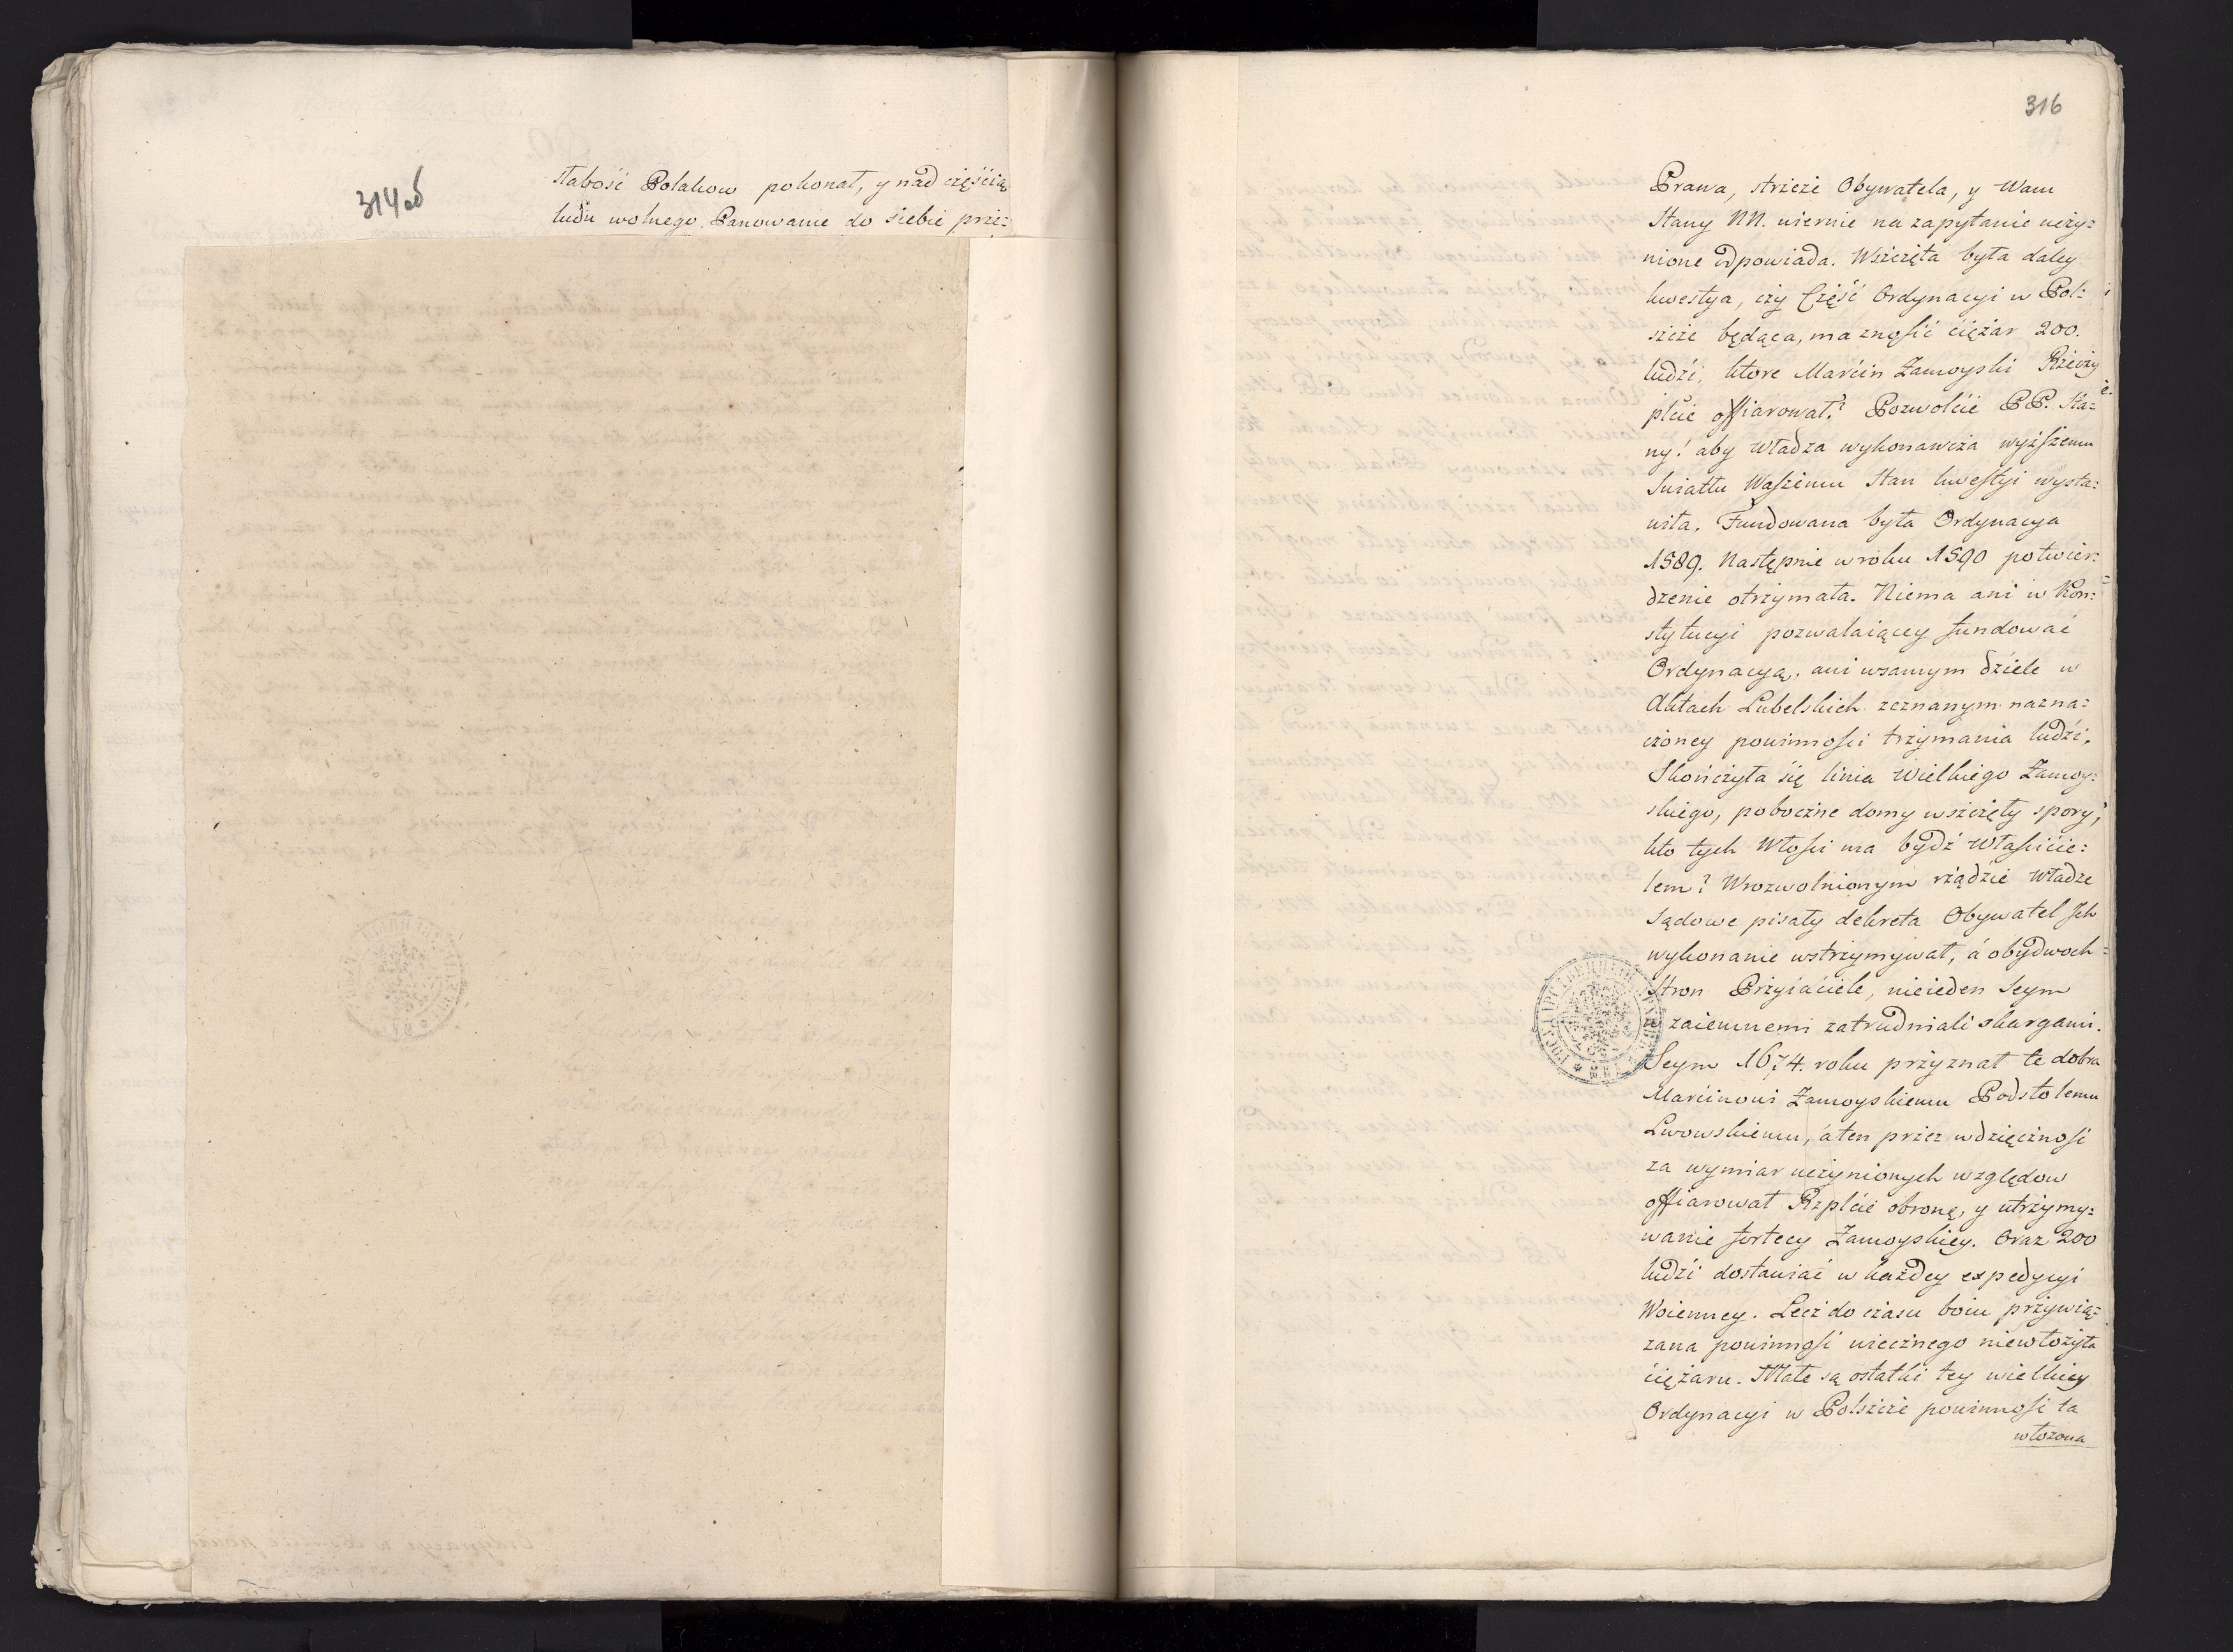 314 об
słabość Polakow pokonał, y nad częścią
ludu wolnego Panowanie do siebie prze=
316
Prawa, strzeże Obywatela, y Wam
Stany NN. wiernie na zapytanie uczy=
nione odpowiada. Wszczęta była daley
kwestya, czy Część Ordynacyi w Pol=
szcze będąca, ma znosić ciężar 200.
ludźi, ktore Marcin Zamoyski Rzeczy
płcie offiarował? Pozwolcie PP. Sta=
ny! aby Władza wykonawcza wyższemu
Swiatłu Waszemu Stan kwestyi wysta=
wiła. Fundowana była Ordynacya
1589. Następnie w roku 1590 potwier=
dzenie otrzymała. Niema ani w Kon=
stytucyi pozwalaiącey fundować
Ordynacyą, ani w samym dziele w
Aktach Lubelskich zeznanym nazna=
czoney powinności trzymania ludźi.
Skończyła się linia Wielkiego Zamoy=
skiego, poboczne domy wszczęły spory,
kto tych Włości ma bydź Właścicie=
lem? W rozwolnionym rządzie Władze
Sądowe pisały dekreta Obywatel Ich
wykonanie wstrzymywał, á obydwoch
Stron Przyiaciele, nieieden Seym
wzaiemnemi zatrudniali skargami.
Seym 1674. roku przyznał te dobra
Marcinowi Zamoyskiemu Podstolemu
Lwowskiemu, á ten przez wdzięczność
za wymiar uczynionych względow
offiarował Rzplcie obronę, y utrzymy=
wanie fortecy Zamoyskiey. Oraz 200
ludźi dostawiać w każdey expedycyi
Woienney. Lecz do czasu boiu przywią=
zana powinność wiecznego niewłożyła
ciężaru. Małe są ostatki tey wielkiey
Ordynacyi w Polszcze powinność ta
włożona